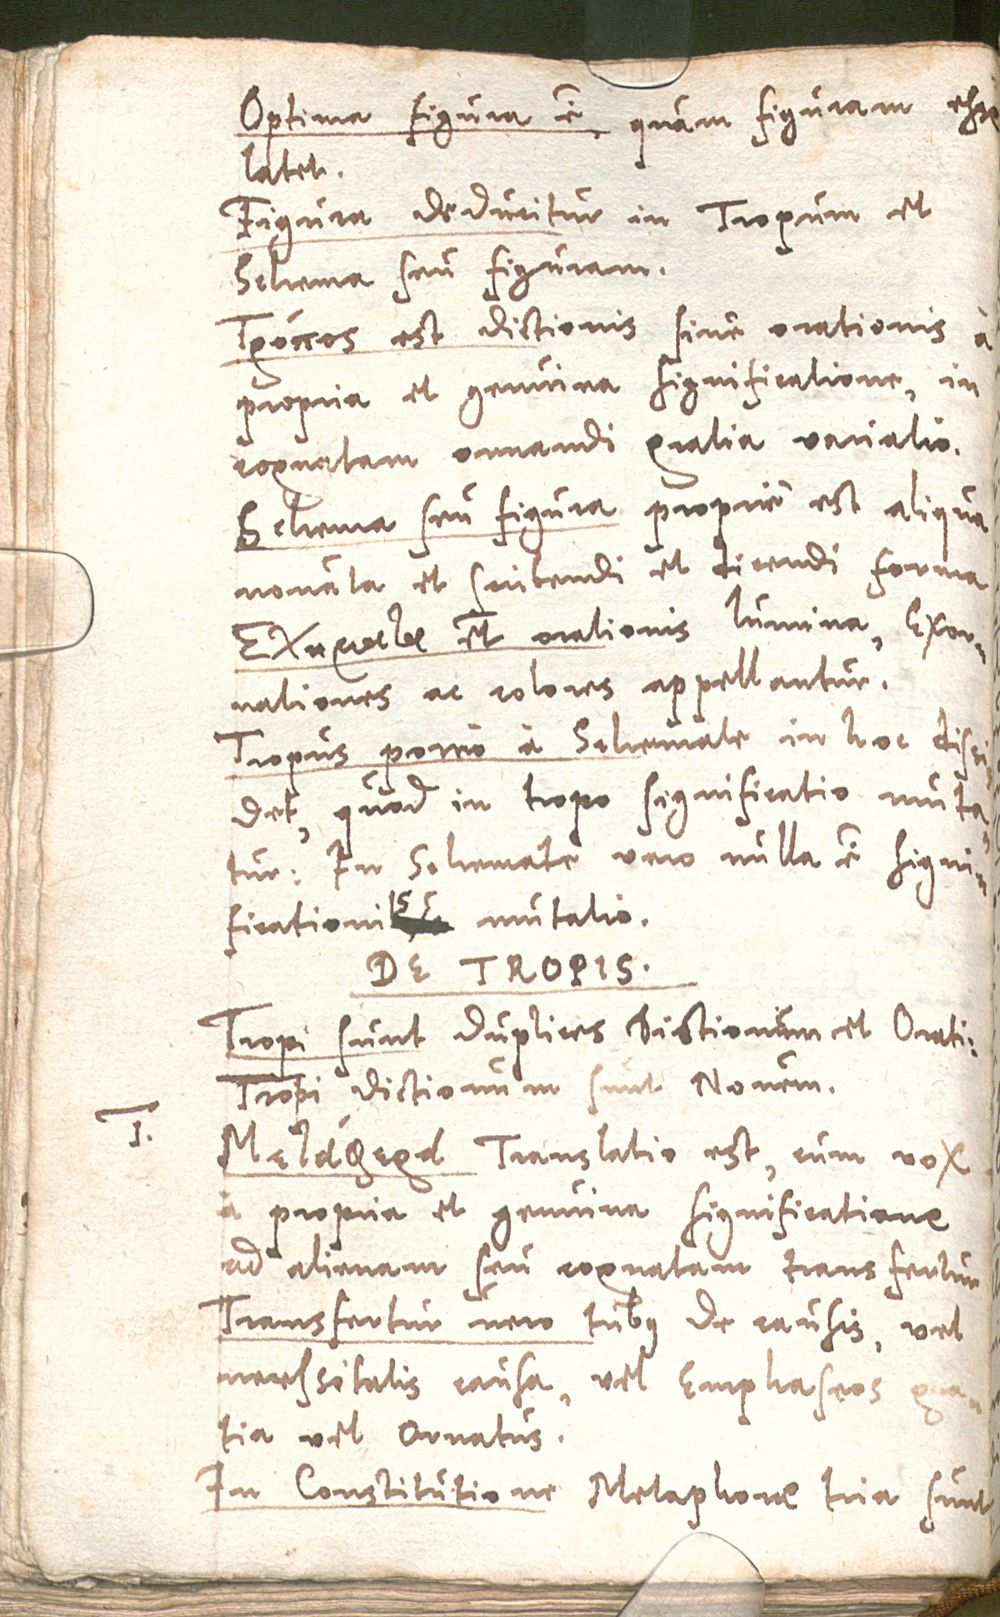 Optima figura ē, quàm figuram eße
latet.
Figura deducitur in Tropum et
Schema seu figuram.
Τρόπος est dictionis siue orationis à
propria et genuina significatione, in
cognatam ornandi gratia variatio.
Schema seu figura propriè est aliqua
nouata et scribendi et dicendi forma
Σχήματα et orationis lumina, Exor-
nationes ac colores appellantur.
Tropus porrò à Schemate in hoc dissi-
det, quod in tropo significatio muta-
tur: In Schemate vero nulla ē signi-
ficationis mutatio.
DE TROPIS.
Tropi sunt duplices Dictionum et Orati:
Tropi dictionum sunt Nouem.
I.
Μεταφορὰ Translatio est, cum vox
à propria et genuina significatione
ad alienam seu cognatam transfertur
Transfertur uero tribq de causis, vel
necessitatis causa, vel Emphaseos gra-
tia vel Ornatus.
In Constitutione Metaphoræ tria sunt